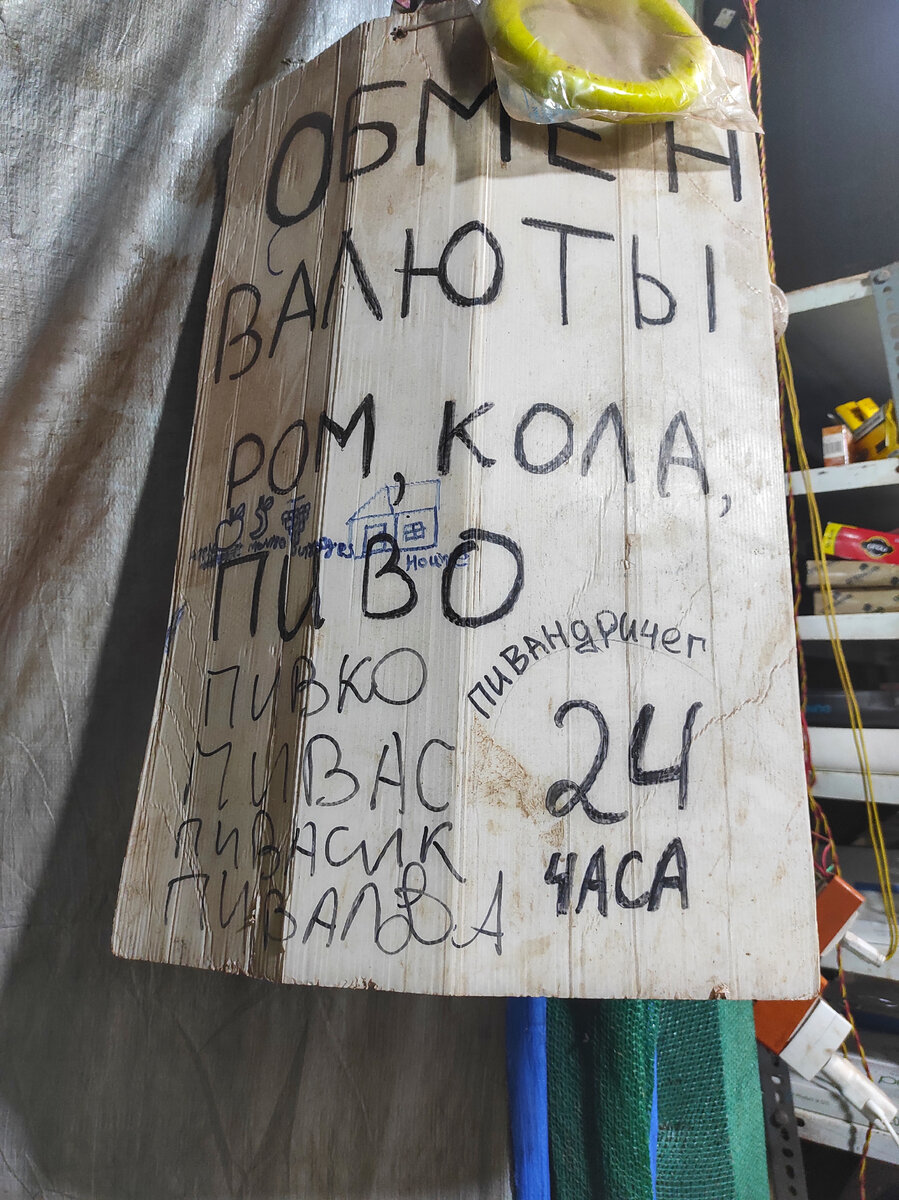 ОБМЕН
ВАЛЮТЫ
РОМ, КОЛА,
House
ПИВО
ПИВКО
ПИВАНДРИЧЕГ
ПИВАС
24
ПИВАСИК
ЧАСА
ПИВАЛОВА